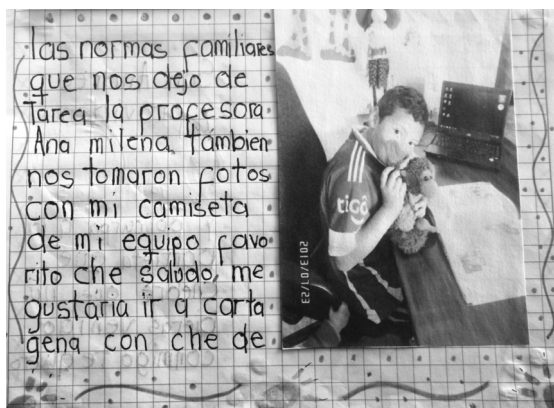 las normas familiares
que nos dejo de
Tarea la profesora
Ana milena también
nos tomaron fotos
con mi camiseta
de mi equipo favo
rito che saludo, me
gustaria ir a carta
gena con che de
tigo
2013/07/23